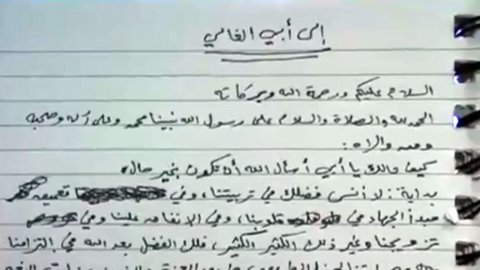 إلى أبي الغالي
السلام عليكم ورحمة الله وبركاته
الحمد لله والصلاة والسلام على رسول الله نبينا محمد وعلى آله وصحبه
ومن والاه:
كيف حالك يا أبي أسأل الله أن تكون بخير حال،
بداية: لا أنس فضلك في تربيتنا، وفي تعميق
مبدأ الجهاد في قلوبنا، وفي الإنفاق علينا وفي
تزويجنا وغير ذلك الكثير الكثير، فلك الفضل بعد الله في التزامنا